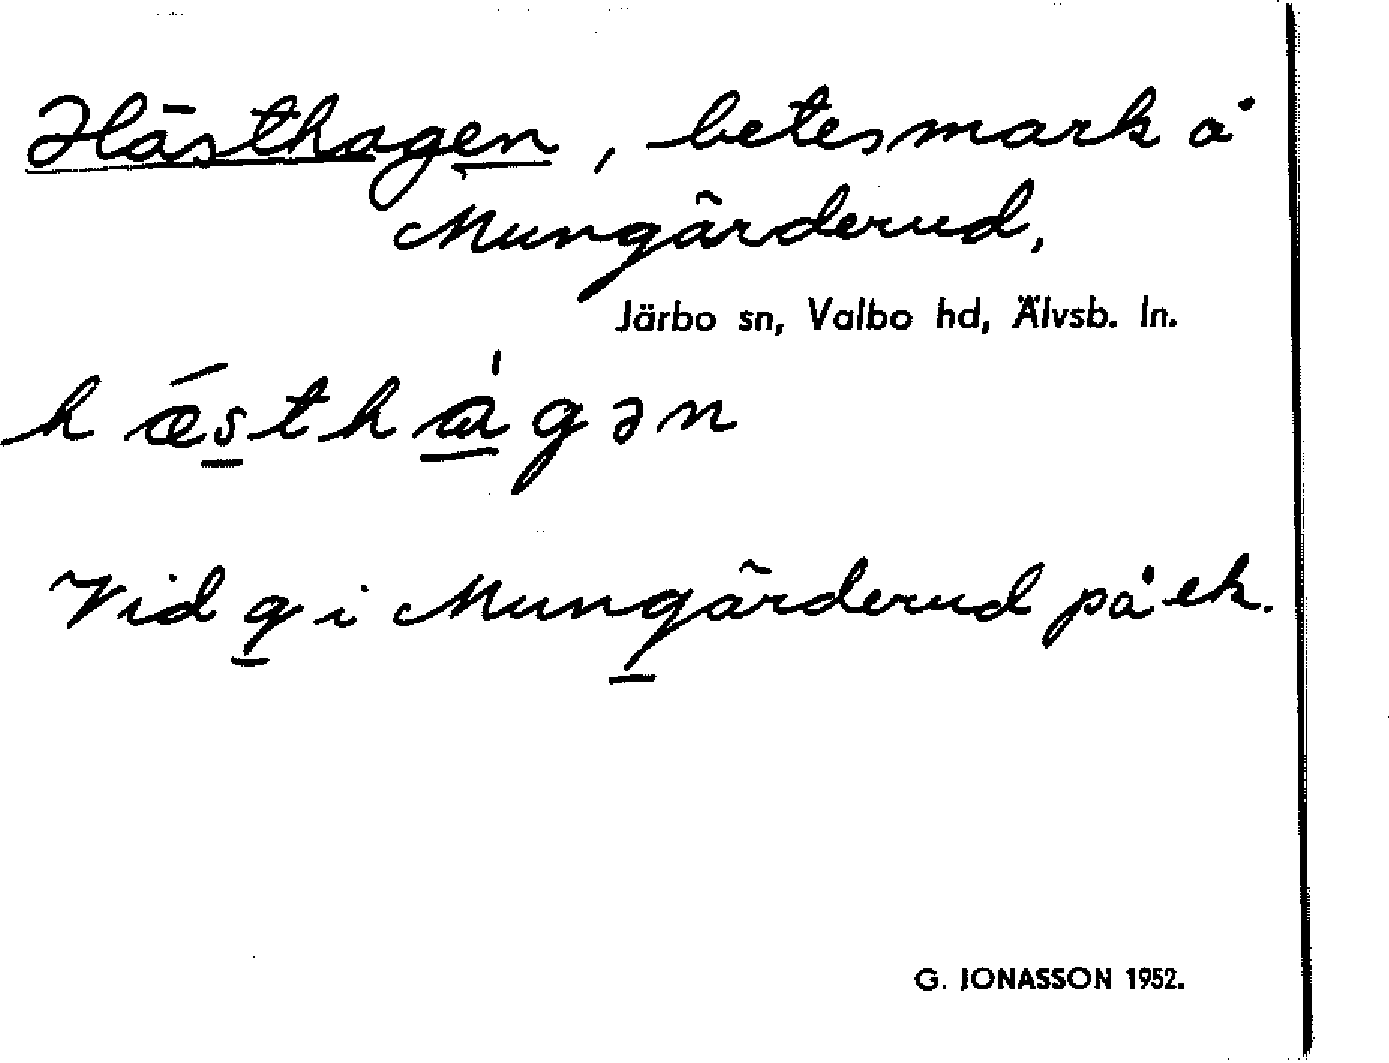 Hästhagen, betesmark å
Mungärderud,
Järbo sn, Valbo hd, Älvsb. ln.
hǽsthàgən
Vid g i Mungärderud på ek.
G. JONASSON 1952.